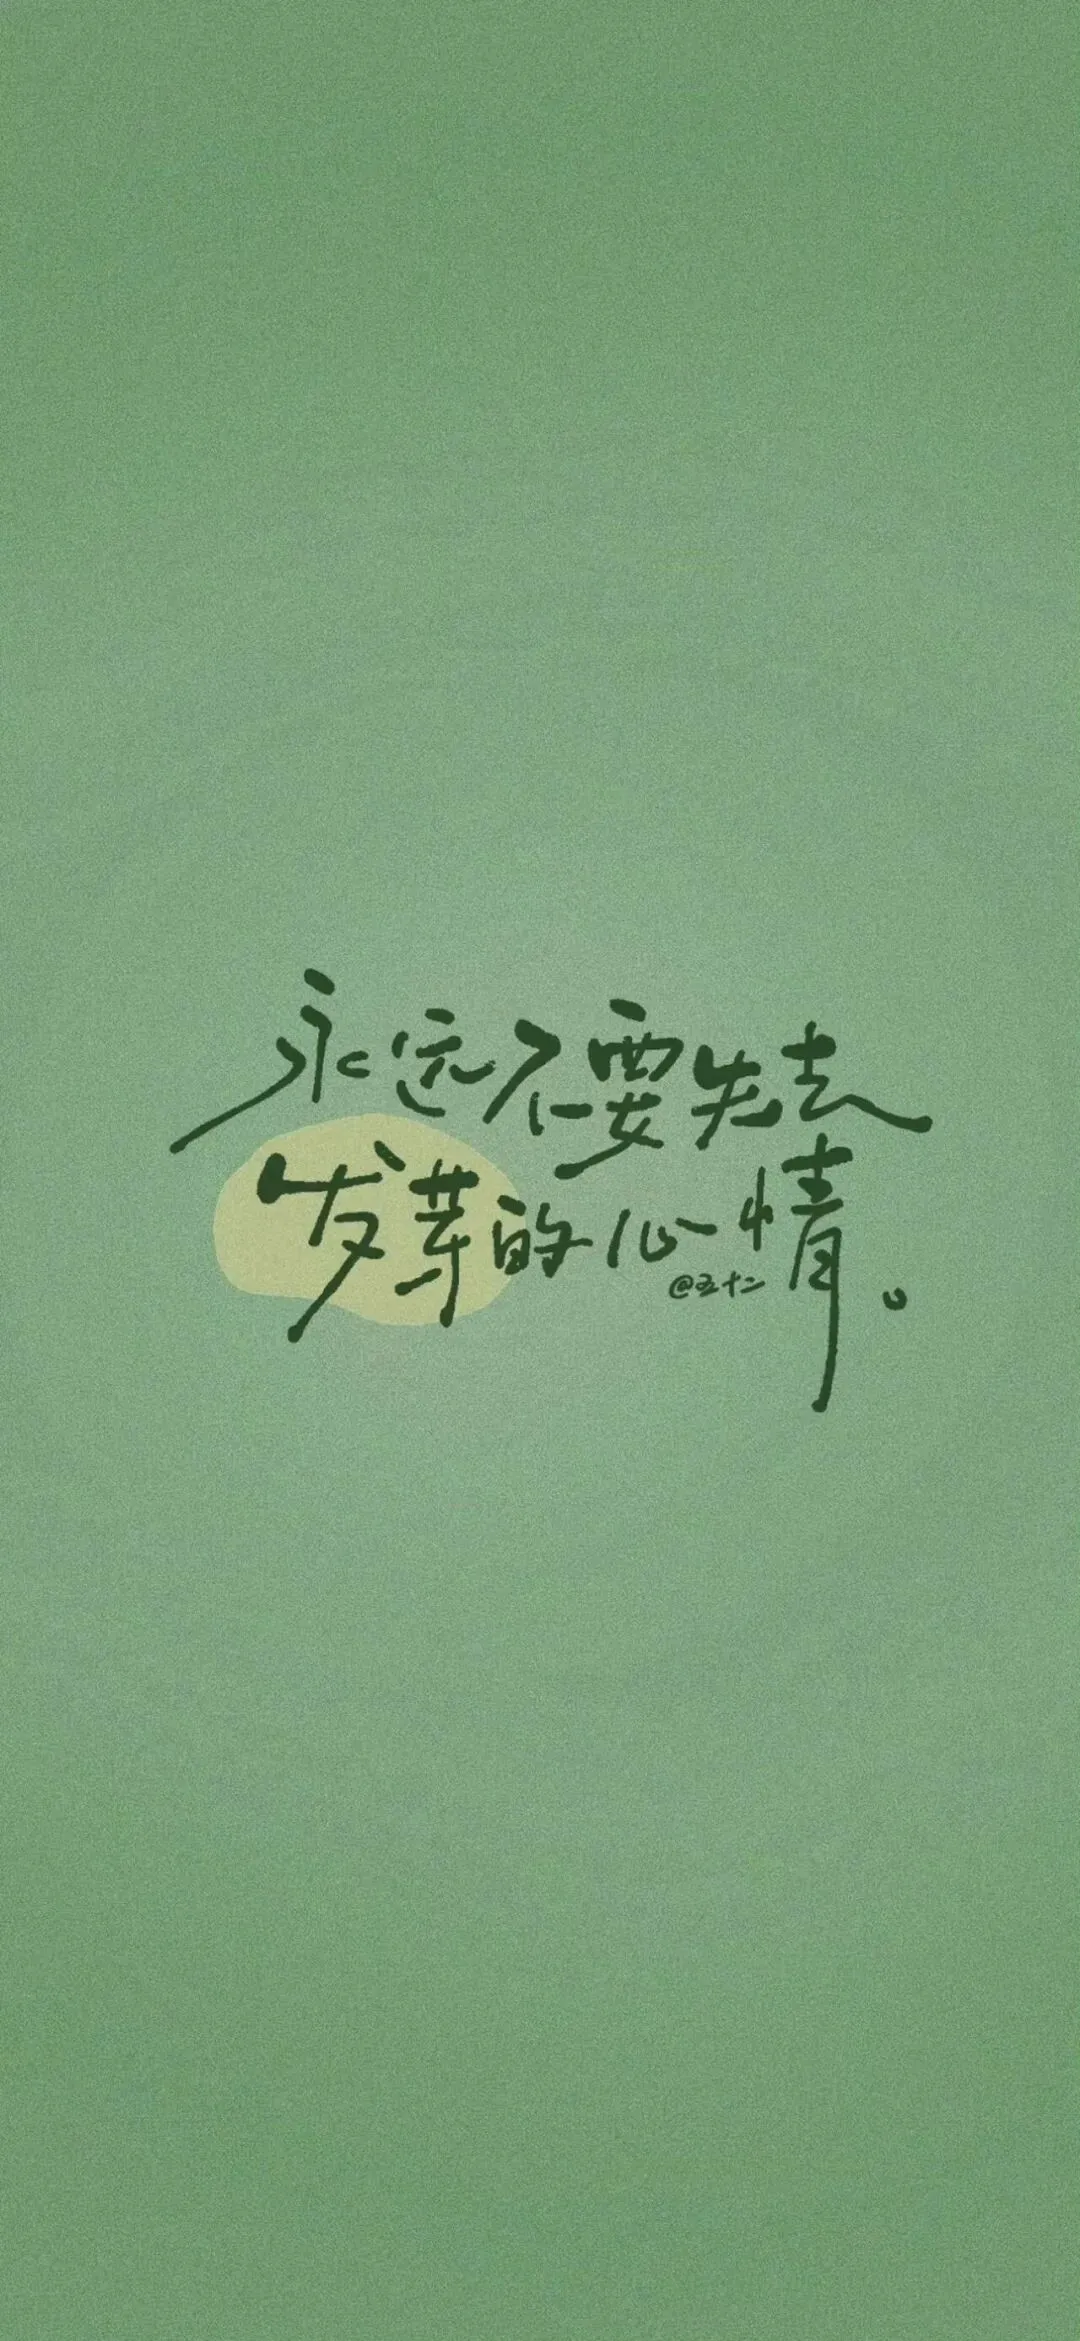 永远不要失去
发芽的心情。
@五十二